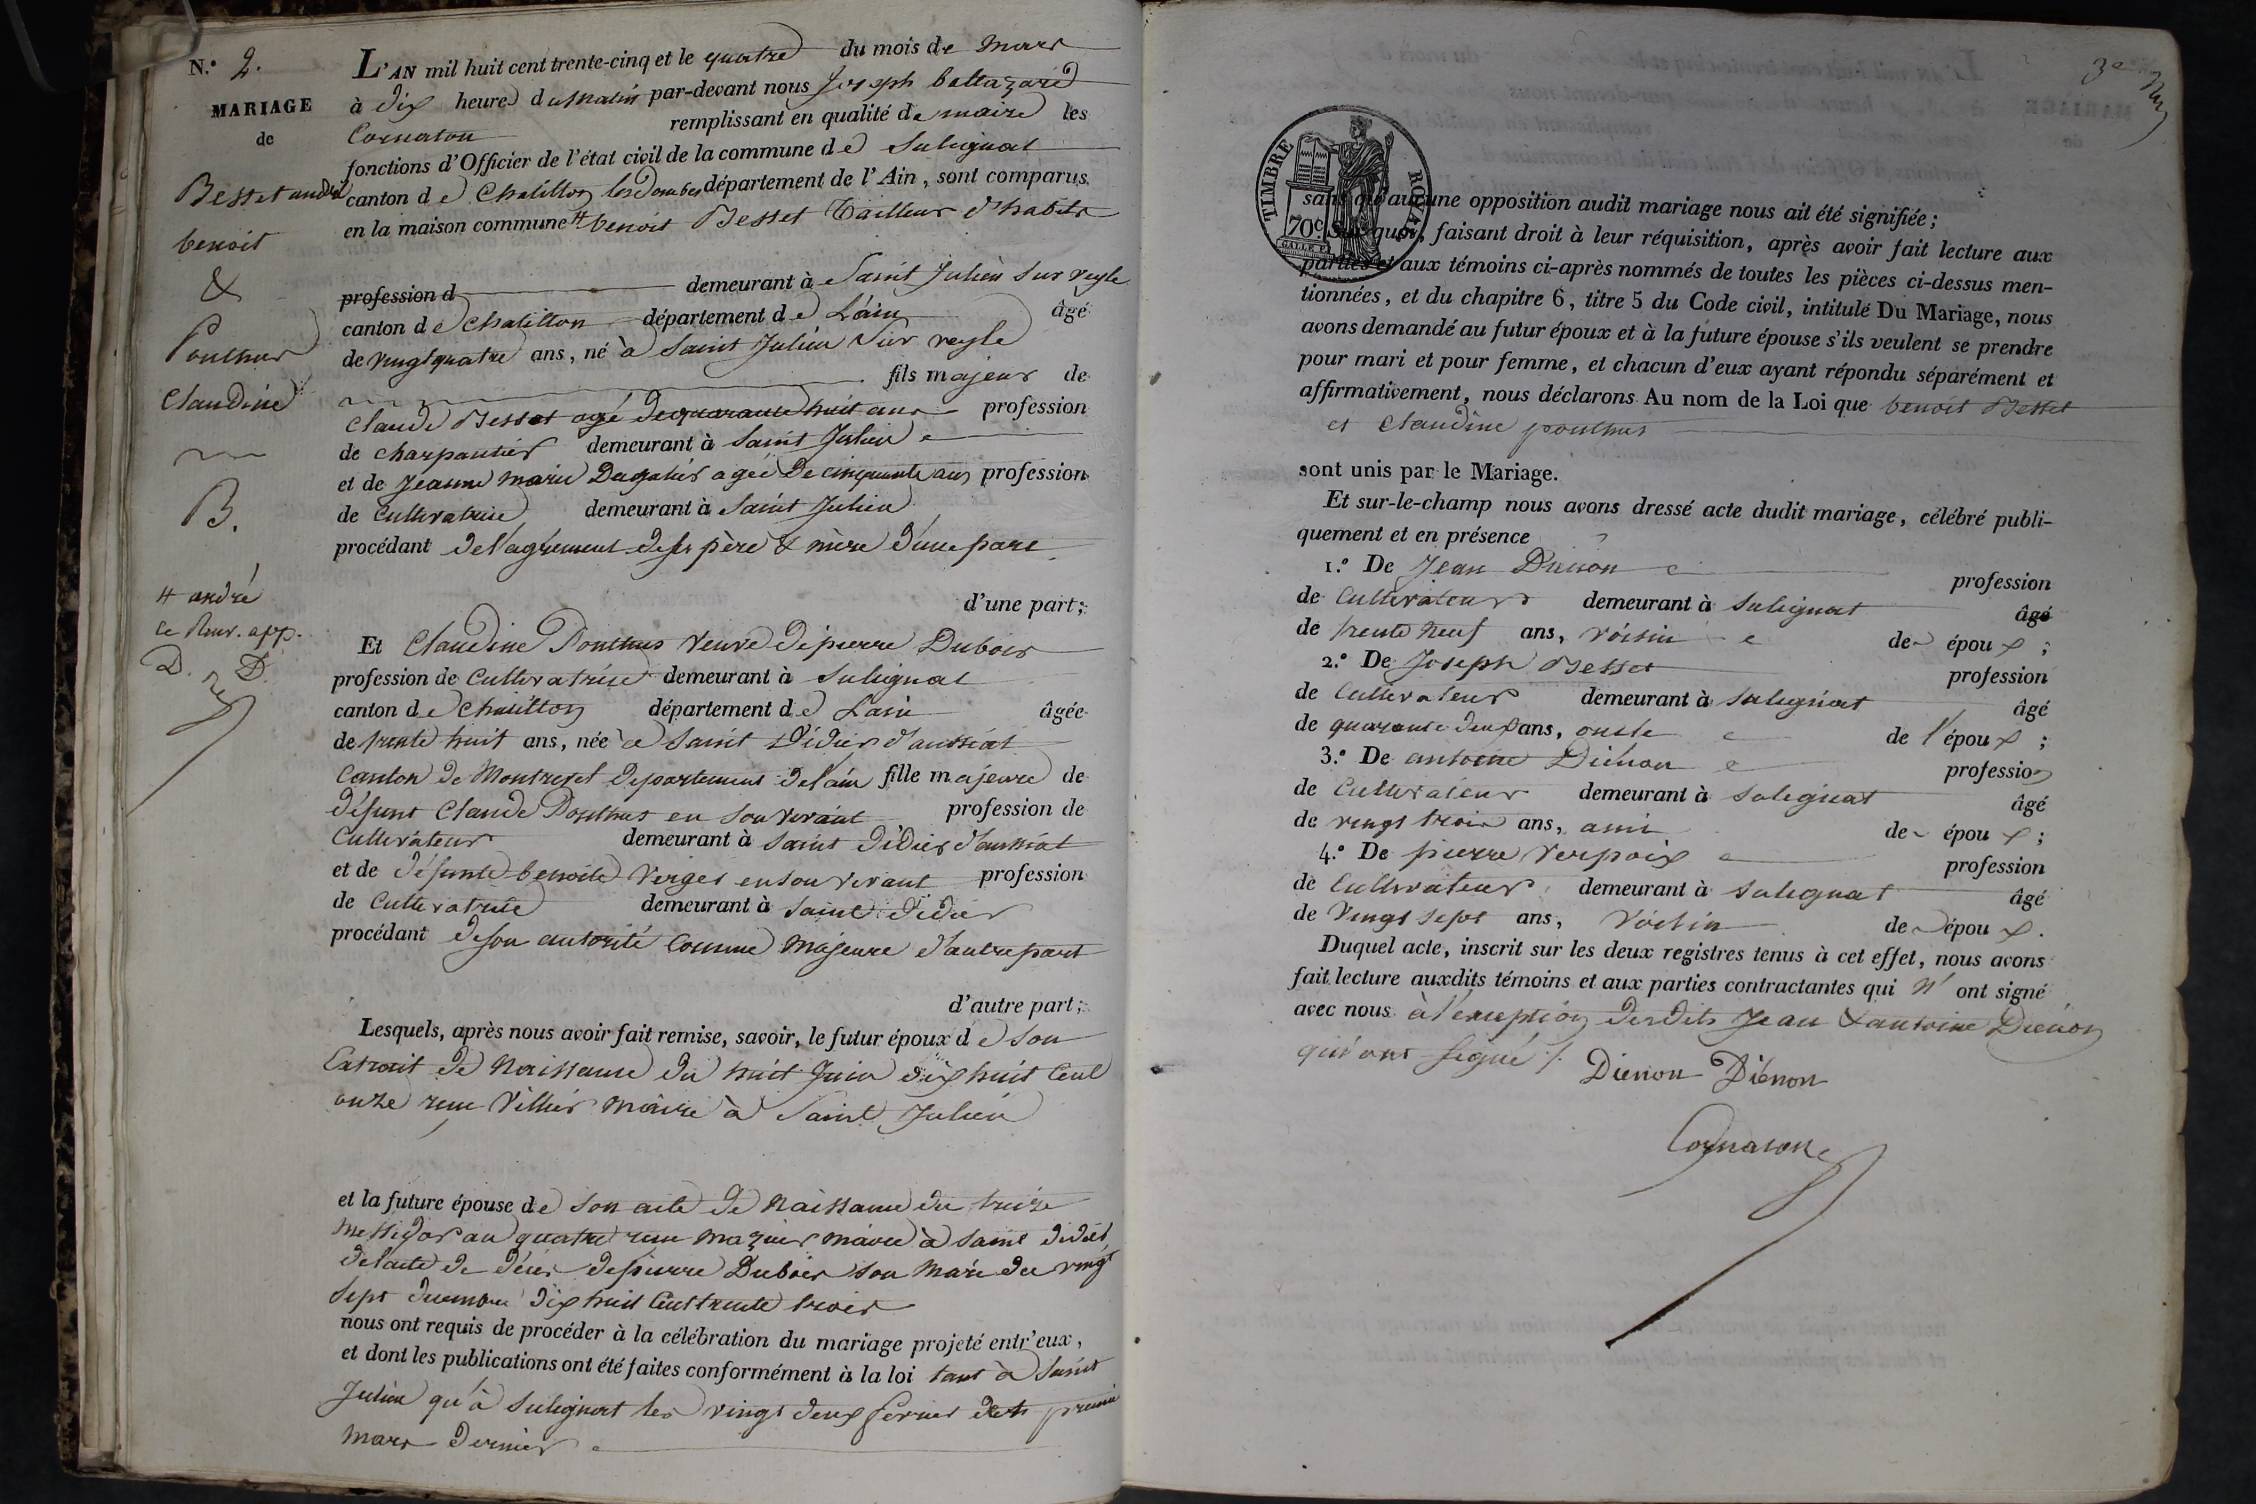 N.º 2.
MARIAGE
de
Besset andré
benoit
&
Ponthus
Claudine
B.
# andré
L'AN mil huit cent trente-cinq et le quatre du mois de Mars
à dix heures du matin par-devant nous Joseph baltazard
Cornaton remplissant en qualité de maire les
fonctions d'Officier de l'état civil de la commune de Sulignat
canton de Chatillon les dombes département de l'Ain, sont comparus
en la maison commune # benoit Besset tailleur d'habits
profession d demeurant à Saint Julien sur veyle
canton de Chatillon département de L'ain âgé
de vingt quatre ans, né à Saint Julien sur veyle
fils majeur de
Claude Besset agé de quarante huit ans profession
de charpentier demeurant à Saint Julien
et de Jeanne Marie agée de cinquante ans profession
de Cultivatrice demeurant à Saint Julien
procédant de l'agrement de ses père & mère d'une part
d'une part;
Et Claudine Ponthus veuve de pierre Dubois
profession de Cultivatrice demeurant à Sulignat
canton de Chatillon département de Lain âgée
de trente huit ans, née à Saint Didier d'aussiat
Canton de Montrevel departement de l'ain fille majeure de
défunt Claude Ponthus en son vivant profession de
Cultivateur demeurant à Saint Didier d'aussiat
et de défunte benoite Verger en son vivant profession
de Cultivatrice demeurant à Saint Didier
procédant de son autorité Comme Majeure d'autre part
d'autre part;
Lesquels, après nous avoir fait remise, savoir, le futur époux de son
Extrait de Naissance du huit Juin dix huit Cent
onze Maire à Saint Julien
et la future épouse de son acte de Naissance du treize
Messidor an quatre maire à Saint Didier,
de l'acte de décès de pierre Dubois son Mari du vingt
Sept decembre dix huit Cent trente trois
nous ont requis de procéder à la célébration du mariage projeté entr'eux,
et dont les publications ont été faites conformément à la loi tant à Saint
Julien qu'à Sulignat les vingt deux fevrier et premier
Mars dernier
3e
TIMBRE ROYAL
70c.
sans qu'aucune opposition audit mariage nous ait été signifiée;
Sur quoi, faisant droit à leur réquisition, après avoir fait lecture aux
parties et aux témoins ci-après nommés de toutes les pièces ci-dessus men-
tionnées, et du chapitre 6, titre 5 du Code civil, intitulé Du Mariage, nous
avons demandé au futur époux et à la future épouse s'ils veulent se prendre
pour mari et pour femme, et chacun d'eux ayant répondu séparément et
affirmativement, nous déclarons Au nom de la Loi que benoit Besset
et Claudine ponthus
sont unis par le Mariage.
Et sur-le-champ nous avons dressé acte dudit mariage, célébré publi-
quement et en présence
1.º De Jean Diénon profession
de Cultivateur demeurant à Sulignat âgé
de trente neuf ans, voisin de époux;
2.º De Joseph Besset profession
de Cultivateur demeurant à Sulignat âgé
de quarante deux ans, oncle de l'époux;
3.º De antoine Diénon profession
de Cultivateur demeurant à Sulignat âgé
de vingt trois ans, ami de époux;
4.º De pierre Verpoix profession
de Cultivateur demeurant à Sulignat âgé
de Vingt Sept ans, Voisin de époux.
Duquel acte, inscrit sur les deux registres tenus à cet effet, nous avons
fait lecture auxdits témoins et aux parties contractantes qui n'ont signé
avec nous à l'exception desdits Jean & antoine Diénon
qui ont signé ./.
Diénon Diénon
Cornaton